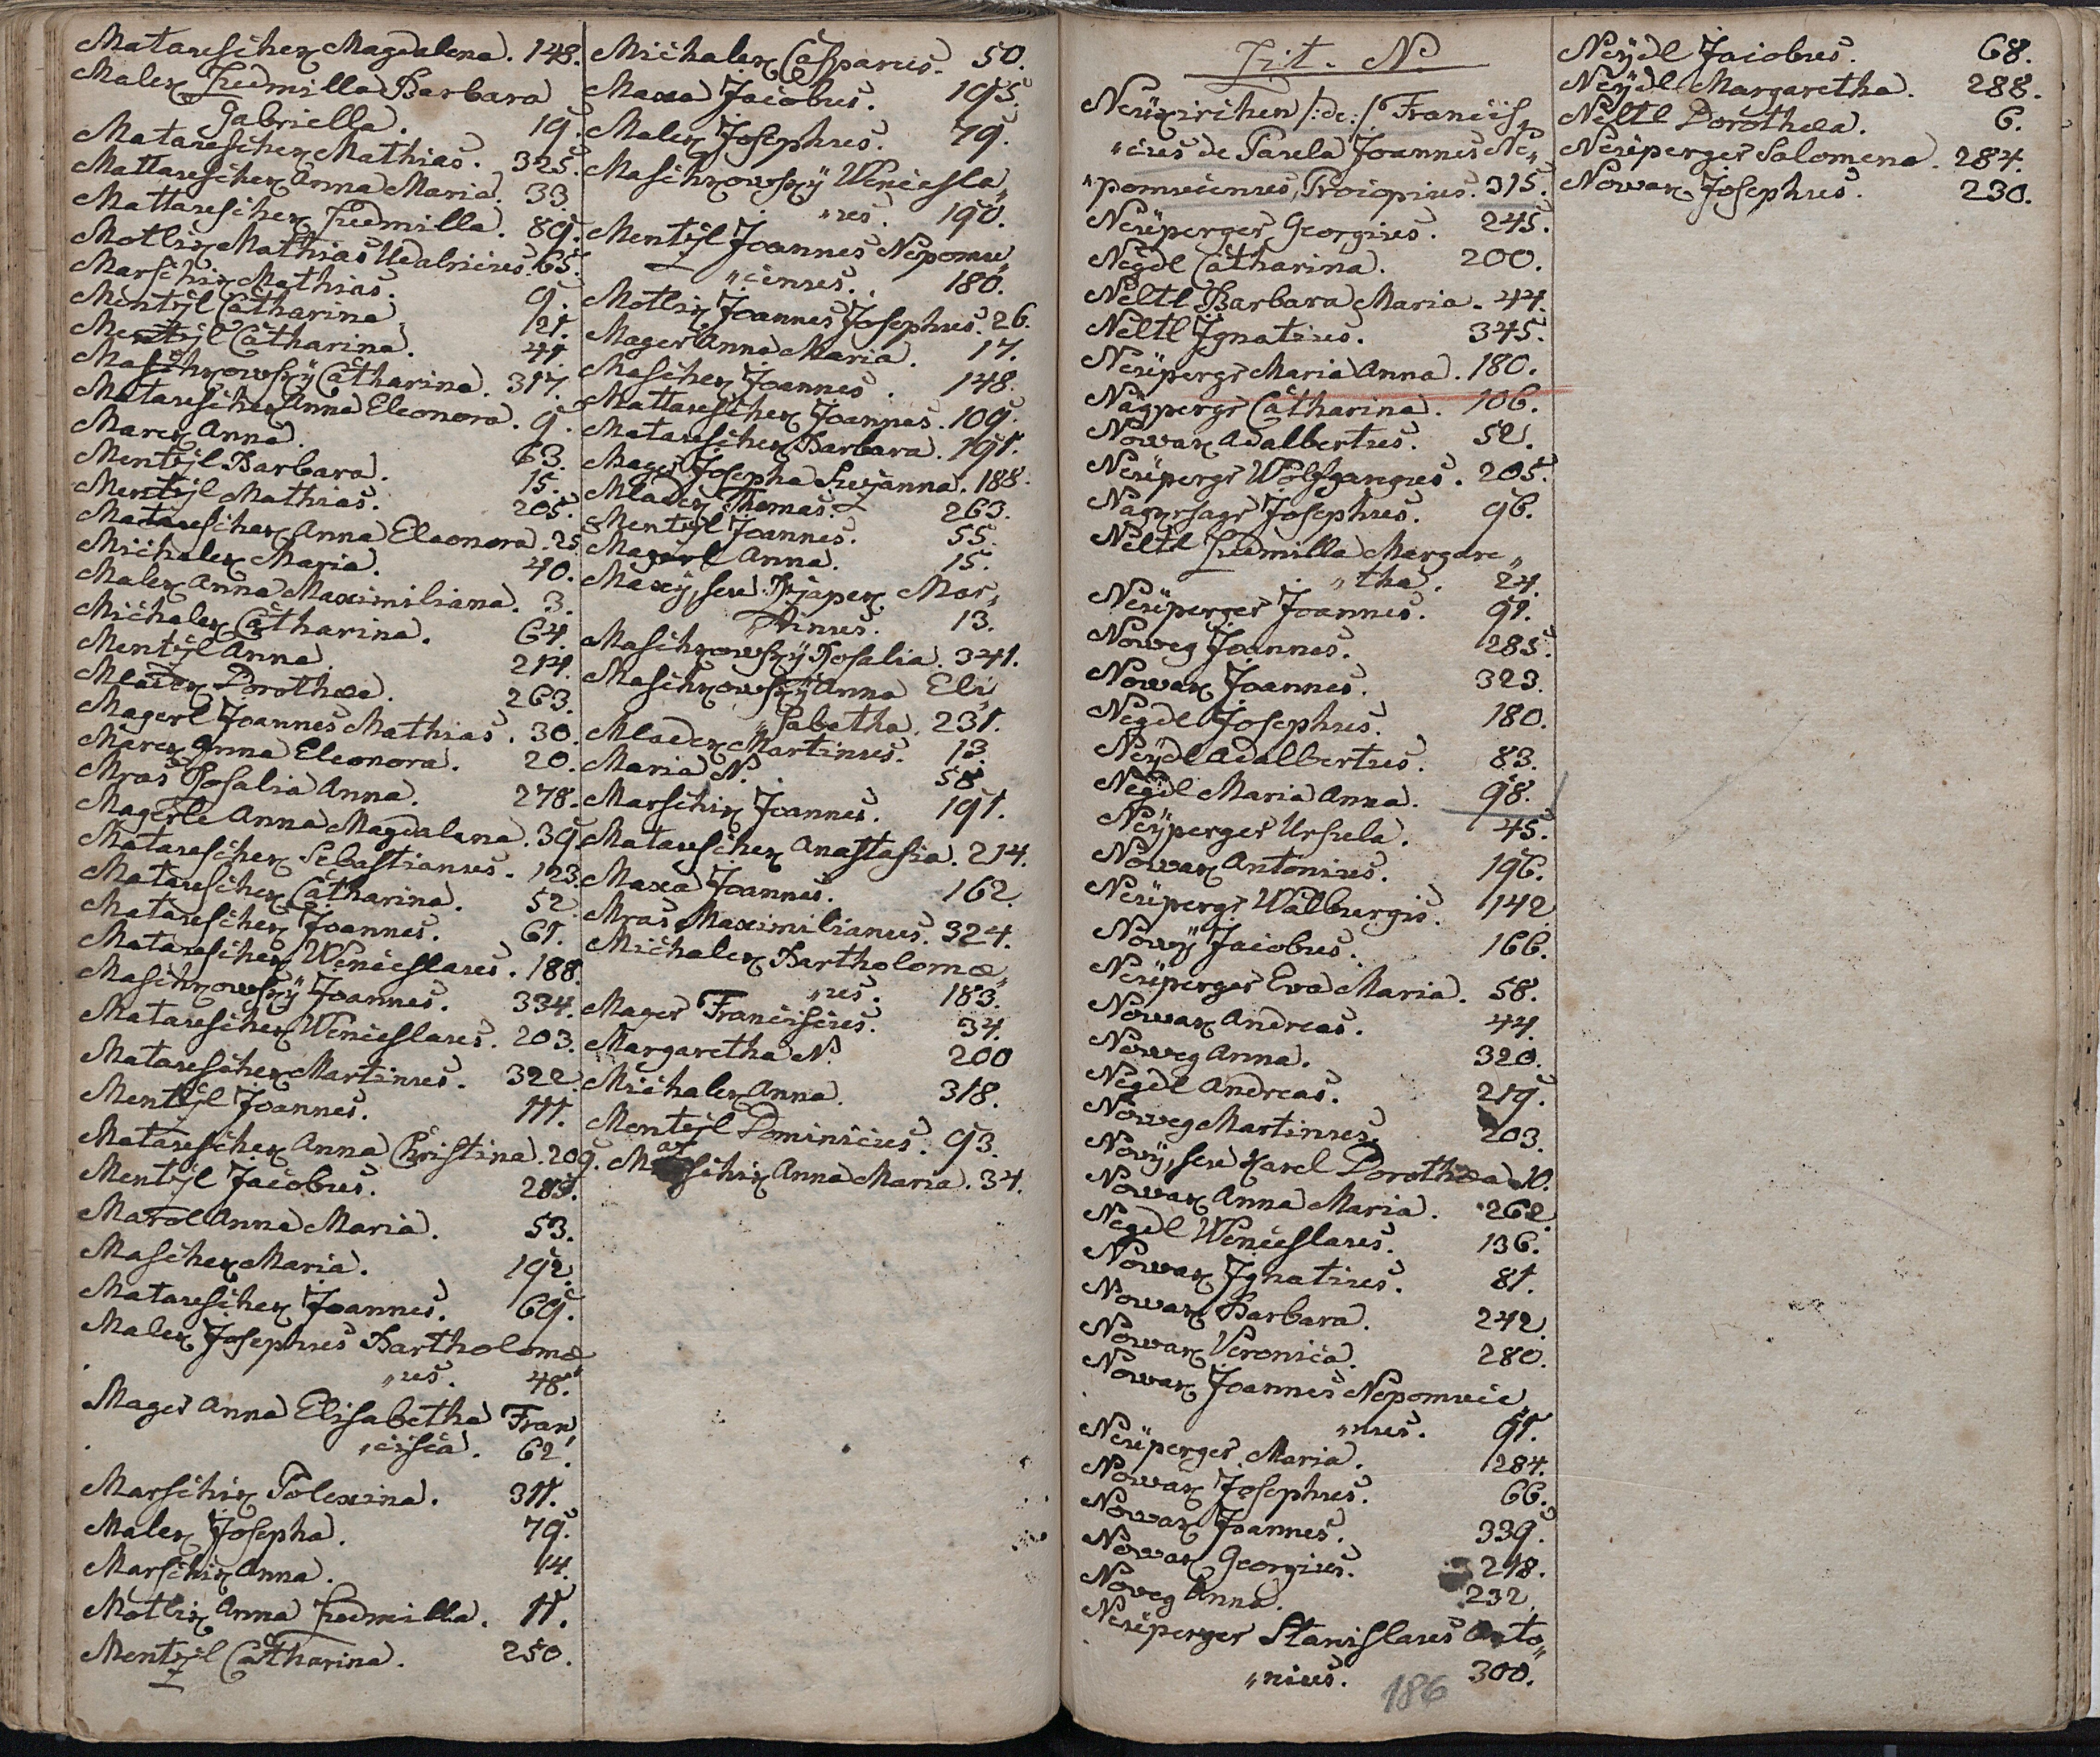 Matauschek Magdalena. 148.
Malek Ludmilla Barbara
Gabriella. 19.
Matauschek Mathias. 325.
Mattauschek Anna Maria. 33.
Mattauschek Ludmilla. 89.
Motlik Mathias Udalricus. 65.
Marschik Mathias. 9.
Mentzl Catharina. 121.
Mentzl Catharina. 41.
Maschkowsky Catharina. 317.
Matauschek Anna Eleonora. 9.
Marek Anna. 63.
Mentzl Barbara. 15.
Mentzl Mathias. 205.
Matauschek Anna Eleonora. 25.
Michalek Maria. 40.
Malek Anna Maximiliana. 3.
Michalek Catharina. 64.
Mentzl Anna. 214.
Mladek Dorothea. 263.
Magerl Joannes Mathias. 30.
Marek Anna Eleonora. 20.
Mras Rosalia Anna. 278.
Magerle Anna Magdalena. 39.
Matauschek Sebastianus. 123.
Matauschek Catharina. 52.
Matauschek Joannes. 61.
Matauschek Wenceslaus. 188.
Maschkowsky Joannes. 334.
Matauschek Wenceslaus. 203.
Matauschek Martinus. 322.
Mentzl Joannes. 111.
Matauschek Anna Christina. 209.
Mentzl Jacobus.
Marol Anna Maria. 53.
Maschek Maria. 192.
Matauschek Joannes. 69.
Malek Josephus Bartholomæ„
„us. 48.
Mager Anna Elisabetha Fran„
„cisca. 62.
Marschik Polexina. 311.
Malek Josepha. 79.
Marschik Anna. 14.
Motlik Anna Ludmilla. 11.
Mentzl Catharina. 250.
Michalek Casparus. 50.
Maxa Jacobus. 195.
Malek Josephus. 79.
Maschkowsky Wencesla„
„us. 190.
Mentzl Joannes Nepomu„
„cenus. 180.
Motlik Joannes Josephus. 26.
Mager Anna Maria. 17.
Maschek Joannes. 148.
Mattauschek Joannes. 109.
Matauschek Barbara. 191.
Mager Josepha Susanna. 188.
Mladek Thomas. 263.
Mentzl Joannes. 55.
Magerl Anna. 15.
Maxy, seu Mar„
„tinus. 13.
Maschkowsky Rosalia. 341.
Maschkowsky Anna Eli„
„sabetha. 231.
Mladek Martinus. 13.
Maria N. 58
Marschik Joannes. 191.
Matauschek Anastasia. 214.
Maxa Joannes. 162.
Mras Maximilianus. 324.
Michalek Bartholomæ„
„us. 183.
Mager Franciscus. 34.
Margaretha N. 200
Michalek Anna. 318.
Mentzl Dominicus. 93.
Marschik Anna Maria. 34.
Lit. N.
Neukirchen /: de :/ Francis„
„cus de Paula Joannes Ne„
„pomucenus, Procopius. 315.
Neuperger Georgius. 245.
Negdl Catharina. 200.
Neltl Barbara Maria. 44.
Neltl Ignatius. 345.
Neupergr Maria Anna. 180.
Nägpergr Catharina. 106.
Nowak Adalbertus. 52.
Neupergr Wolfgangus. 205.
Josephus. 96.
Neltl Ludmilla Margare„
„tha. 24.
Neuperger Joannes. 91.
Noweg Joannes. 285.
Nowak Joannes. 323.
Negdl Josephus. 180.
Neydl Adalbertus. 83.
Negdl Maria Anna. 98.
Neyperger Ursula. 45.
Nowak Antonius. 196.
Neupergr Walburgis. 142
Nowy Jacobus. 166.
Neuperger Eva Maria. 58.
Nowak Andreas. 44.
Noweg Anna. 320.
Negdl Andreas. 219.
Noweg Martinus. 203.
Novy, seu Karel Dorothea 10.
Nowak Anna Maria. 262.
Negdl Wenceslaus. 136.
Nowak Ignatius. 81.
Nowak Barbara. 242.
Nowak Veronica. 280.
Nowak Joannes Nepomuce„
„nus. 91.
Neuperger Maria. 284.
Nowak Josephus. 66.
Nowak Joannes. 339.
Nowak Georgius. 218.
Noveg Anna. 232.
Neuperger Stanislaus Anto„
„nius. 300.
186
Neydl Jacobus. 68.
Neydl Margaretha. 288.
Neltl Dorothea. 6.
Neuperger Salomena. 284.
Nowak Josephus. 230.